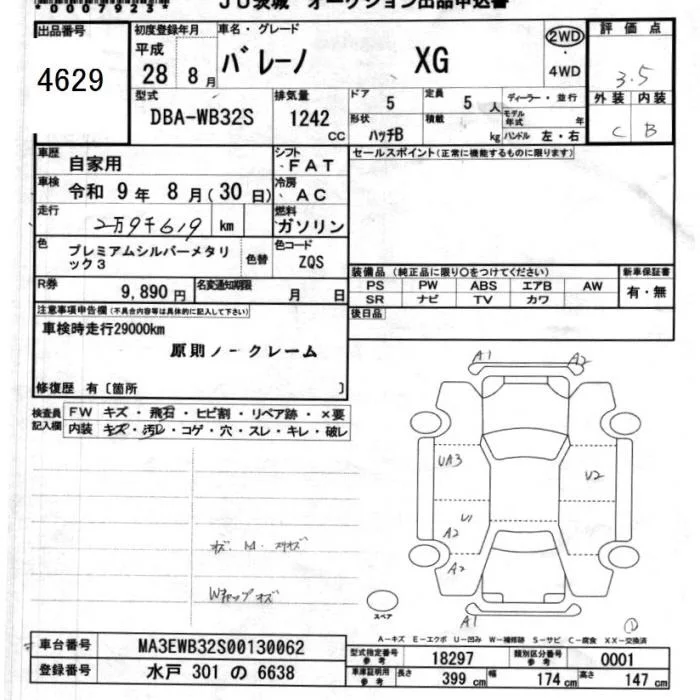 00079235
JU茨城 オークション出品申込書
出品番号
4629
初度登録年月
平成
28 8月
車名・グレード
バレーノ XG
2WD
4WD
評価点
3.5
外装 内装
C B
型式
DBA-WB32S
排気量
1242 CC
ドア
5
定員
5 人
形状
ハッチB
積載
kg
ディーラー・並行
モデル年式 年
ハンドル 左・右
車歴
自家用
シフト
・FAT
車検
令和 9年 8月(30日)
冷房
・AC
走行
2万9千619 km
燃料
ガソリン
色
プレミアムシルバーメタリ
ック3
色替
色コード
ZQS
R券
9,890円
名変通知期限
月 日
セールスポイント(正常に機能するものに限ります)
装備品(純正品に限り○をつけてください)
PS PW ABS エアB AW
SR ナビ TV カワ
新車保証書
有・無
後日品
注意事項申告欄(不具合内容等は具体的に記入して下さい)
車検時走行29000km
原則ノークレーム
修復歴 有〔箇所 〕
検査員
記入欄
FW キズ・飛石・ヒビ割・リペア跡・×要
内装 キズ・汚レ・コゲ・穴・スレ・キレ・破レ
Wキャップキズ
A1 A2
UA3
V2
U1
A2
A2
A1
スペア
A-キズ E-エクボ U-凹み W-補修跡 S-サビ C-腐食 XX-交換済
車台番号
MA3EWB32S00130062
登録番号
水戸 301 の 6638
型式指定番号
参考
18297
類別区分番号
参考
0001
車庫証明用
参考
長さ 399 cm 幅 174 cm 高さ 147 cm